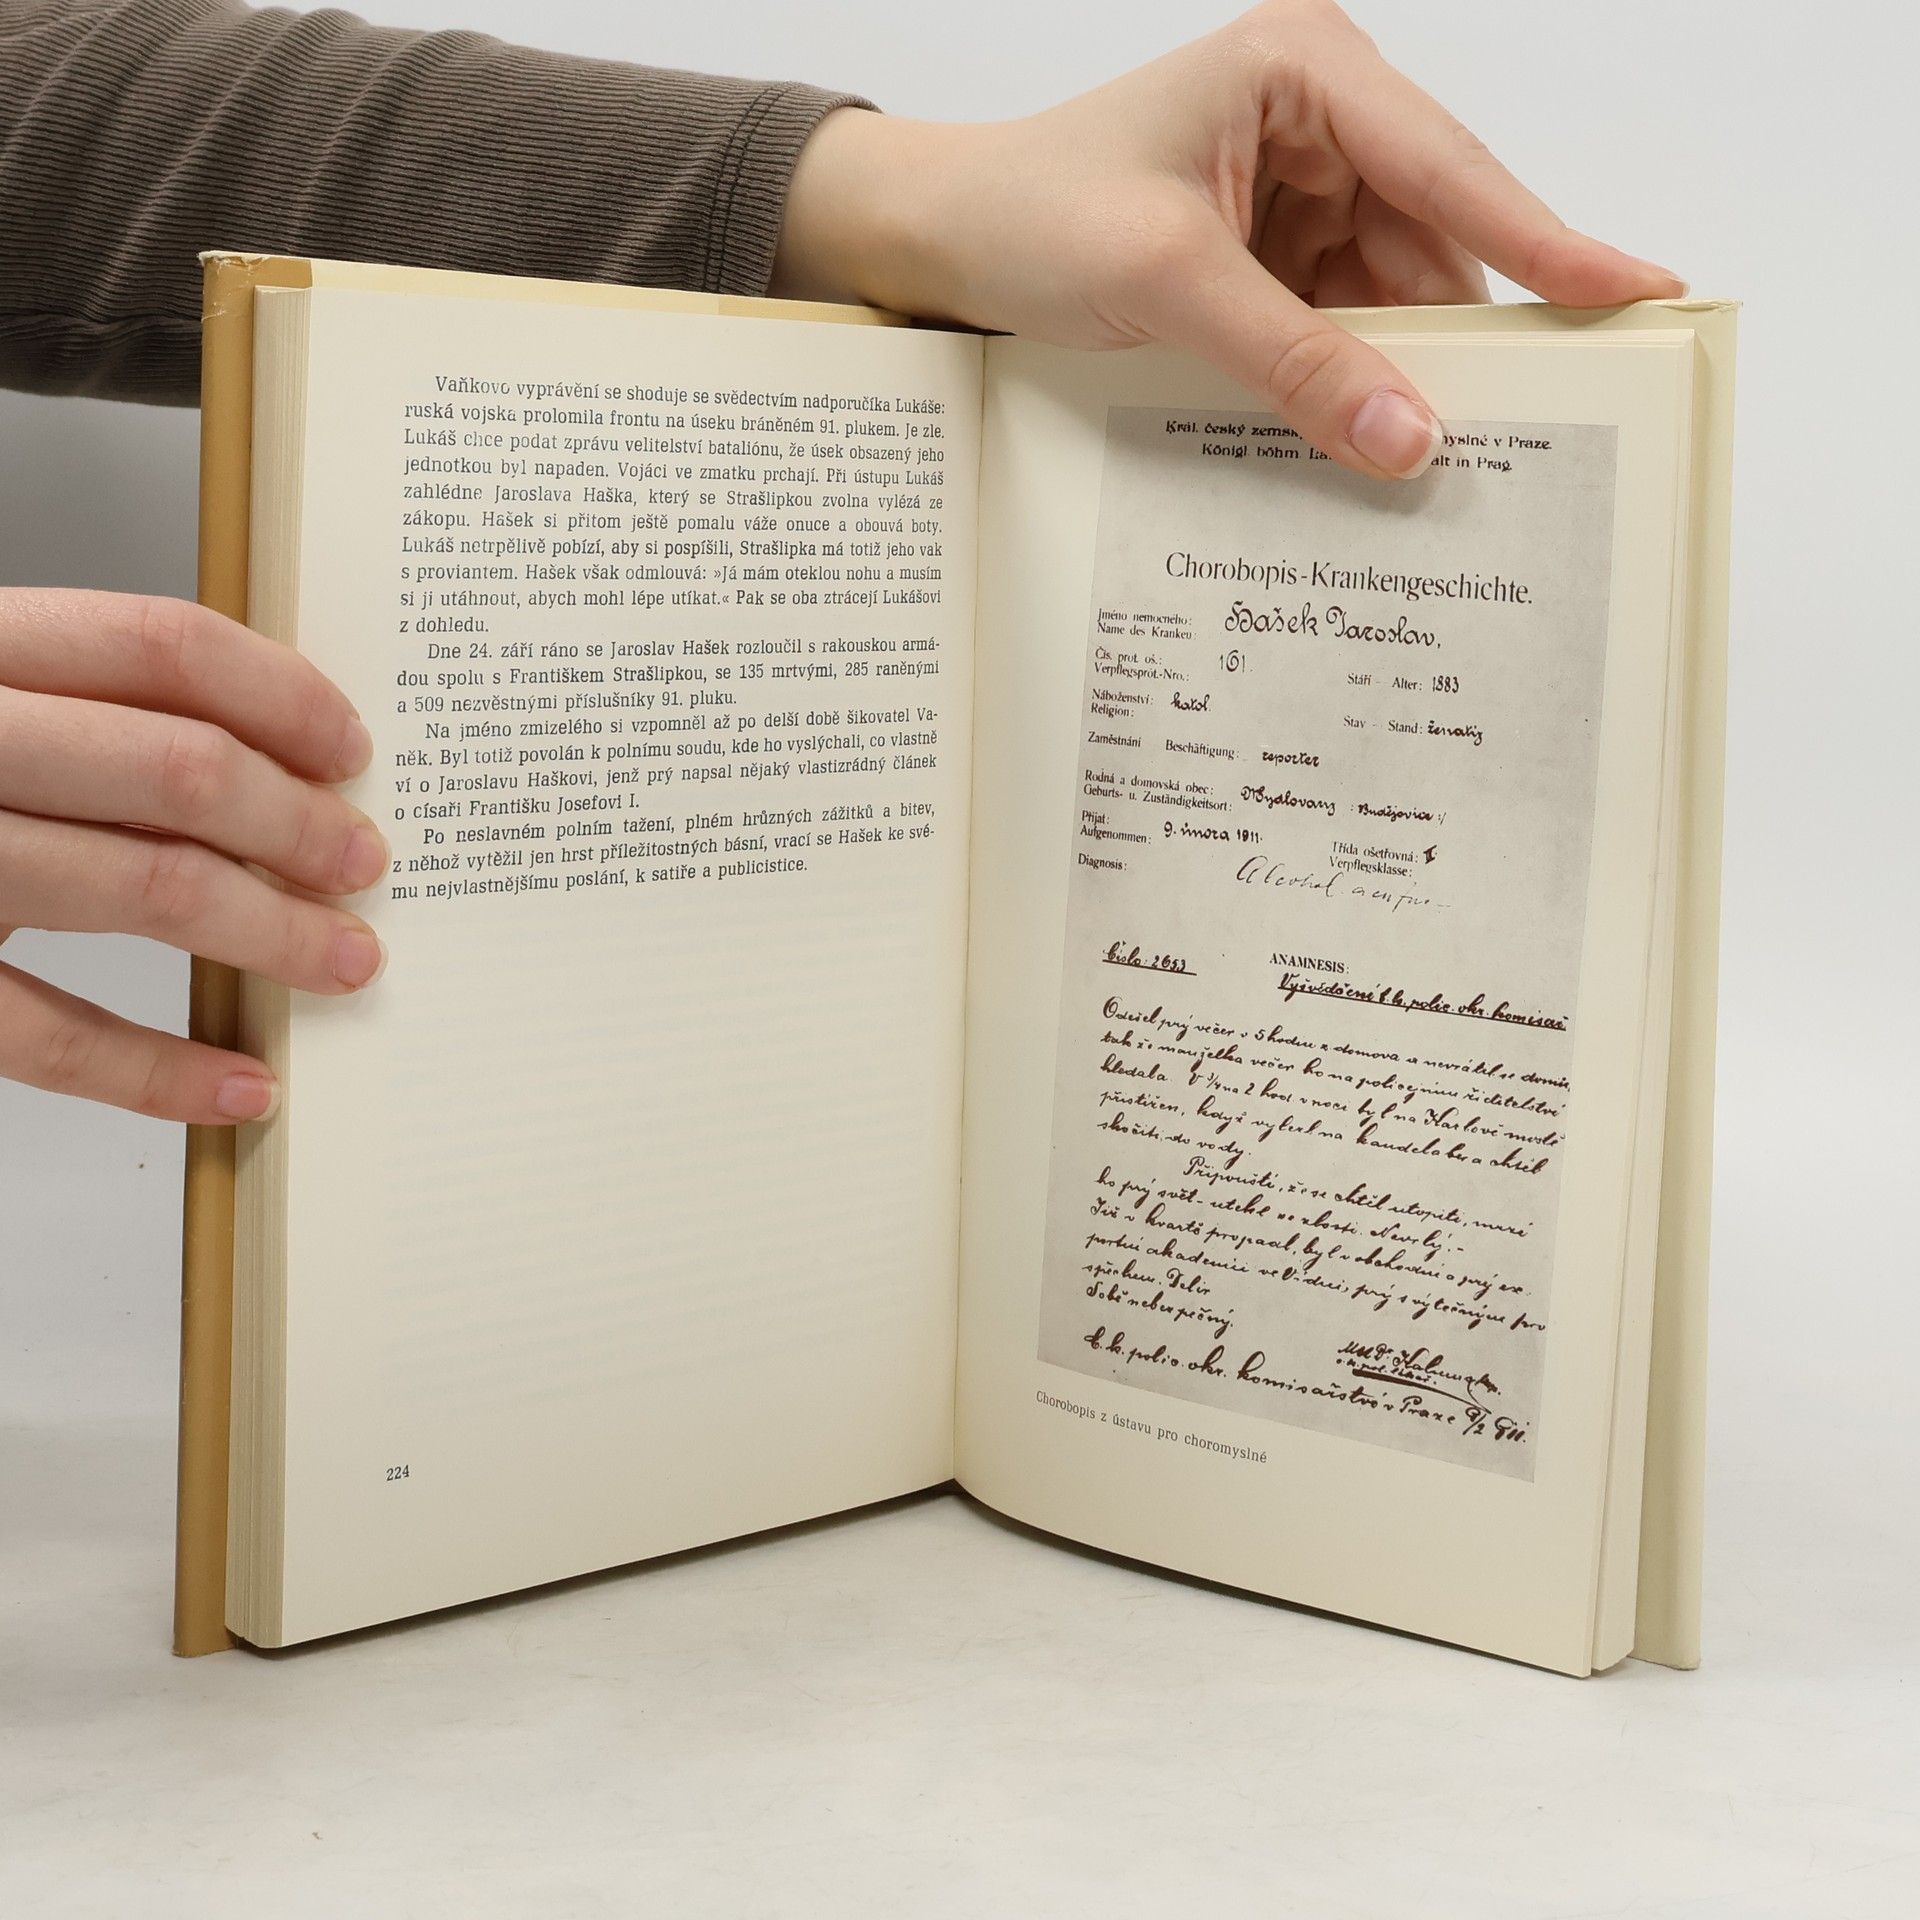 Vaňkovo vyprávění se shoduje se svědectvím nadporučíka Lukáše:
ruská vojska prolomila frontu na úseku bráněném 91. plukem. Je zle.
Lukáš chce podat zprávu velitelství bataliónu, že úsek obsazený jeho
jednotkou byl napaden. Vojáci ve zmatku prchají. Při ústupu Lukáš
zahlédne Jaroslava Haška, který se Strašlipkou zvolna vylézá ze
zákopu. Hašek si přitom ještě pomalu váže onuce a obouvá boty.
Lukáš netrpělivě pobízí, aby si pospíšili, Strašlipka má totiž jeho vak
s proviantem. Hašek však odmlouvá: »Já mám oteklou nohu a musím
si ji utáhnout, abych mohl lépe utíkat.« Pak se oba ztrácejí Lukášovi
z dohledu.
Dne 24. září ráno se Jaroslav Hašek rozloučil s rakouskou armá-
dou spolu s Františkem Strašlipkou, se 135 mrtvými, 285 raněnými
a 509 nezvěstnými příslušníky 91. pluku.
Na jméno zmizelého si vzpomněl až po delší době šikovatel Va-
něk. Byl totiž povolán k polnímu soudu, kde ho vyslýchali, co vlastně
ví o Jaroslavu Haškovi, jenž prý napsal nějaký vlastizrádný článek
o císaři Františku Josefovi I.
Po neslavném polním tažení, plném hrůzných zážitků a bitev,
z něhož vytěžil jen hrst příležitostných básní, vrací se Hašek ke své-
mu nejvlastnějšímu poslání, k satiře a publicistice.
224
Král. český zemsk myslné v Praze.
Königl. böhm. La alt in Prag.
Chorobopis-Krankengeschichte.
Jméno nemocného: Hašek Jaroslav,
Name des Kranken:
Čís. prot. oš.: 161.
Verpflegsprot.-Nro.:
Stáří - Alter: 1883
Náboženství: katol.
Religion:
Stav - Stand: ženatý
Zaměstnání Beschäftigung: reporter
Rodná a domovská obec: Mydlovary : Budějovice :/
Geburts- u. Zuständigkeitsort:
Přijat: 9. února 1911.
Aufgenommen:
Třída ošetřovná: II
Verpflegsklasse:
Diagnosis: Alcohol.
Číslo: 2653
ANAMNESIS:
Vysvědčení c. k. polic. okr. komisař.
Odešel prý večer v 5 hodin z domova a nevrátil se domů,
tak že manželka večer ho na policejním ředitelství
hledala. V 3/4 na 2 hod. v noci byl na Karlově mostě
přistižen, když vylezl na kandelabr a chtěl
skočiti do vody.
Připouští, že se chtěl utopiti, mrzí
ho prý svět - utekl ze zlosti. Nevrlý. -
Již v kvartě propadl, byl v obchodní a prý ex-
portní akademii ve Vídni, prý s výtečným pro
spěchem. Delir
Sobě nebezpečný.
C. k. polic. okr. komisařství v Praze 9/2 911.
Chorobopis z ústavu pro choromyslné